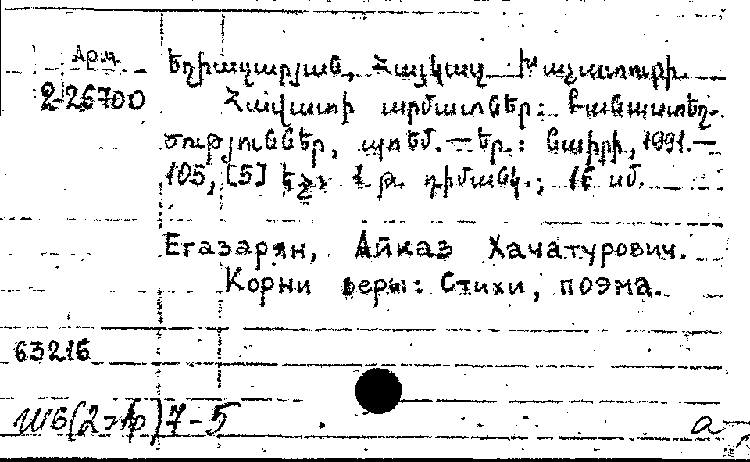 Арм.
2-26700
Եղիազարյան, Հայկազ Խաչատուրի
Հավատի արմատներ: Բանաստեղ-
ծություններ, պոեմ. — Եր.: Նաիրի, 1991.—
105, [5] էջ: 1 թ. դիմանկ.; 16 սմ.
Егазарян, Айказ Хачатурович.
Корни веры: Стихи, поэма.
63216
Ш6(2=Ар)7-5
а